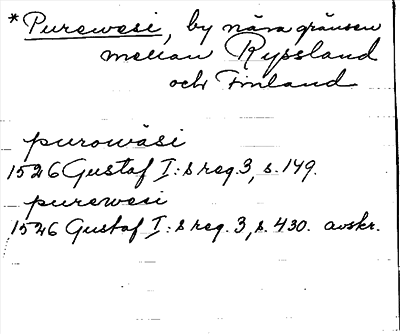 *Purewesi, by nära gränsen
mellan Ryssland
och Finland
purowäsi
1526 Gustaf I:s reg. 3, s. 149.
purewesi
1526 Gustaf I:s reg. 3, s. 430. avskr.